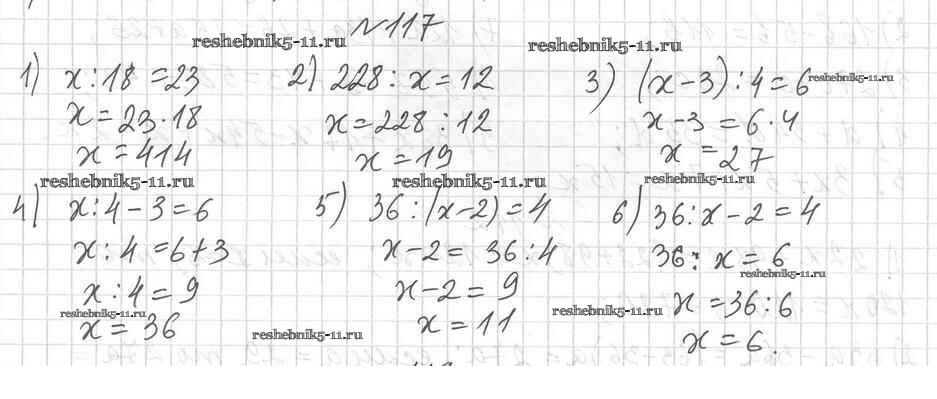 №117
reshebnik5-11.ru
reshebnik5-11.ru
1) x : 18 = 23
x = 23 · 18
x = 414
2) 228 : x = 12
x = 228 : 12
x = 19
3) (x - 3) : 4 = 6
reshebnik5-11.ru
x - 3 = 6 · 4
x = 27
reshebnik5-11.ru
reshebnik5-11.ru
reshebnik5-11.ru
4) x : 4 - 3 = 6
x : 4 = 6 + 3
x : 4 = 9
reshebnik5-11.ru
x = 36
5) 36 : (x - 2) = 4
x - 2 = 36 : 4
x - 2 = 9
x = 11
reshebnik5-11.ru
6) 36 : x - 2 = 4
36 : x = 6
reshebnik5-11.ru
x = 36 : 6
reshebnik5-11.ru
x = 6.